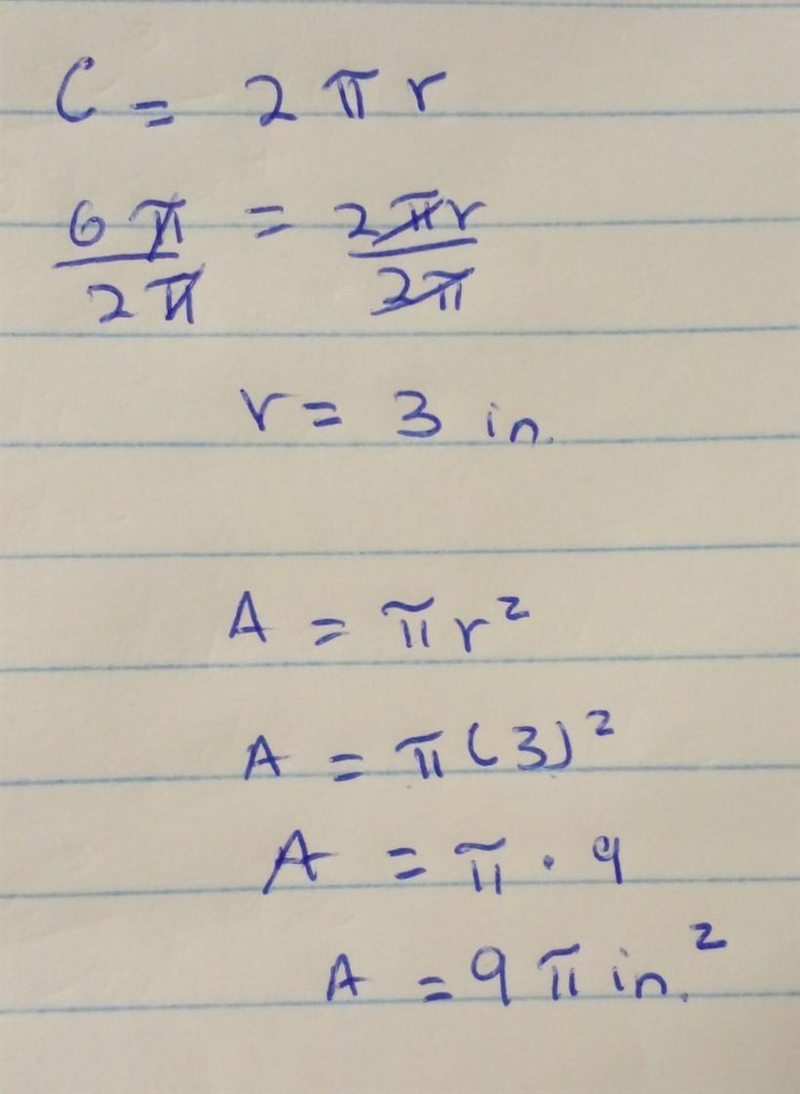 C = 2πr
6π/2π = 2πr/2π
r = 3 in.
A = πr²
A = π(3)²
A = π · 9
A = 9π in.²